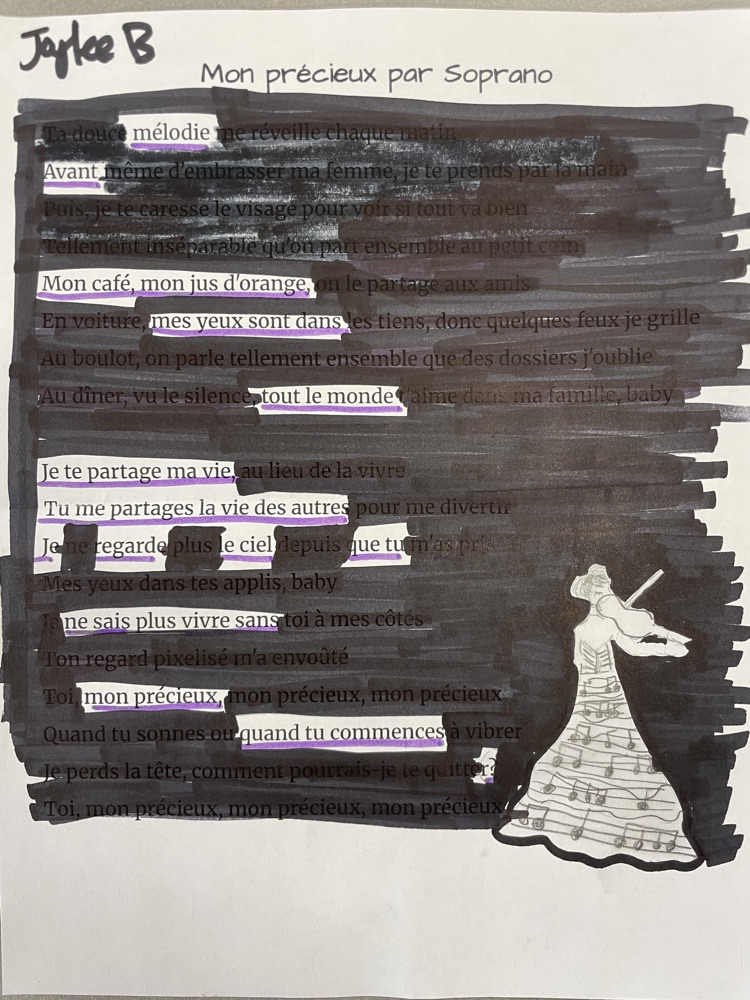 Jaylee B
Mon précieux par Soprano
Ta douce mélodie me réveille chaque matin
Avant même d'embrasser ma femme, je te prends par la main
Puis, je te caresse le visage pour voir si tout va bien
Tellement inséparable qu'on part ensemble au petit coin
Mon café, mon jus d'orange, on le partage aux amis
En voiture, mes yeux sont dans les tiens, donc quelques feux je grille
Au boulot, on parle tellement ensemble que des dossiers j'oublie
Au dîner, vu le silence, tout le monde t'aime dans ma famille, baby
Je te partage ma vie, au lieu de la vivre
Tu me partages la vie des autres pour me divertir
Je ne regarde plus le ciel depuis que tu m'as pris
Mes yeux dans tes applis, baby
Je ne sais plus vivre sans toi à mes côtés
Ton regard pixelisé m'a envoûté
Toi, mon précieux, mon précieux, mon précieux
Quand tu sonnes ou quand tu commences à vibrer
Je perds la tête, comment pourrais-je te quitter?
Toi, mon précieux, mon précieux, mon précieux